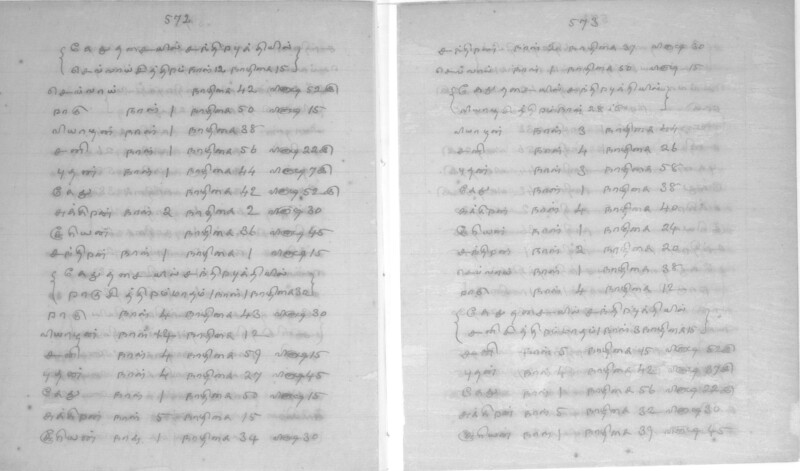 572
கேது தசையில் சந்திரபுத்தியில்
செவ்வாய் சித்திரம் நாள் 12 நாழிகை 15
செவ்வாய் நாழிகை 42 வினாடி 52௫
ராகு நாள் 1 நாழிகை 50 வினாடி 15
வியாழன் நாள் 1 நாழிகை 38
சனி நாள் 1 நாழிகை 56 வினாடி 22௫
புதன் நாள் 1 நாழிகை 44 வினாடி 7௫
கேது நாழிகை 42 வினாடி 52௫
சுக்கிரன் நாள் 2 நாழிகை 2 வினாடி 30
சூரியன் நாழிகை 36 வினாடி 45
சந்திரன் நாள் 1 நாழிகை 1 வினாடி 15
கேது தசையில் சந்திரபுத்தியில்
ராகு சித்திரம் மாதம் 1 நாள் 1 நாழிகை 30
ராகு நாள் 4 நாழிகை 43 வினாடி 30
வியாழன் நாள் 4 நாழிகை 12
சனி நாள் 4 நாழிகை 59 வினாடி 15
புதன் நாள் 4 நாழிகை 27 வினாடி 45
கேது நாள் 1 நாழிகை 50 வினாடி 15
சுக்கிரன் நாள் 5 நாழிகை 15
சூரியன் நாள் 1 நாழிகை 34 வினாடி 30
573
சந்திரன் நாள் 2 நாழிகை 37 வினாடி 30
செவ்வாய் நாள் 1 நாழிகை 50 வினாடி 15
கேது தசையில் சந்திரபுத்தியில்
வியாழ சித்திரம் நாள் 28
வியாழன் நாள் 3 நாழிகை 44
சனி நாள் 4 நாழிகை 26
புதன் நாள் 3 நாழிகை 58
கேது நாள் 1 நாழிகை 38
சுக்கிரன் நாள் 4 நாழிகை 40
சூரியன் நாள் 1 நாழிகை 24
சந்திரன் நாள் 2 நாழிகை 20
செவ்வாய் நாள் 1 நாழிகை 38
ராகு நாள் 4 நாழிகை 12
கேது தசையில் சந்திரபுத்தியில்
சனி சித்திரம் மாதம் 1 நாள் 3 நாழிகை 15
சனி நாள் 5 நாழிகை 15 வினாடி 52௫
புதன் நாள் 4 நாழிகை 42 வினாடி 37௫
கேது நாள் 1 நாழிகை 56 வினாடி 22௫
சுக்கிரன் நாள் 5 நாழிகை 32 வினாடி 30
சூரியன் நாள் 1 நாழிகை 39 வினாடி 45